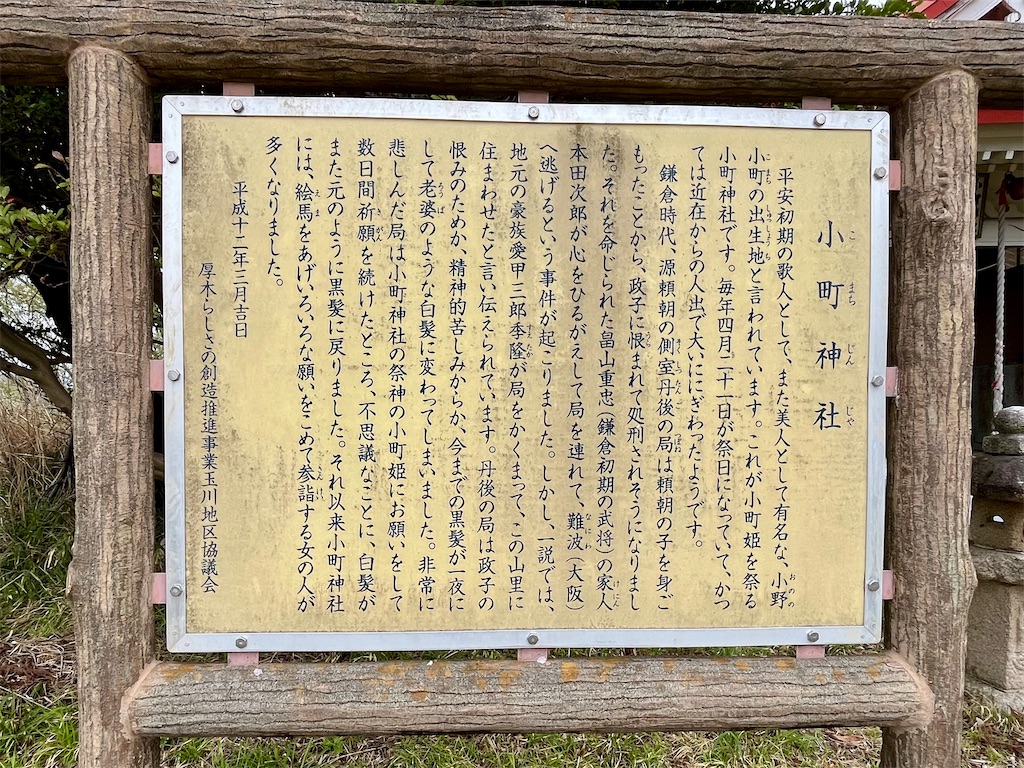 小町神社
平安初期の歌人として、また美人として有名な、小野
小町の出生地と言われています。これが小町姫を祭る
小町神社です。毎年四月二十一日が祭日になっていて、かつ
ては近在からの人出で大いににぎわったようです。
鎌倉時代、源頼朝の側室丹後の局は頼朝の子を身ご
もったことから、政子に恨まれて処刑されそうになりまし
た。それを命じられた畠山重忠(鎌倉初期の武将)の家人
本田次郎が心をひるがえして局を連れて、難波(大阪)
へ逃げるという事件が起こりました。しかし、一説では、
地元の豪族愛甲三郎季隆が局をかくまって、この山里に
住まわせたと言い伝えられています。丹後の局は政子の
恨みのためか、精神的苦しみからか、今までの黒髪が一夜に
して老婆のような白髪に変わってしまいました。非常に
悲しんだ局は小町神社の祭神の小町姫にお願いをして
数日間祈願を続けたところ、不思議なことに、白髪が
また元のように黒髪に戻りました。それ以来小町神社
には、絵馬をあげ、いろいろな願いをこめて参詣する女の人が
多くなりました。
平成十二年三月吉日
厚木らしさの創造推進事業玉川地区協議会